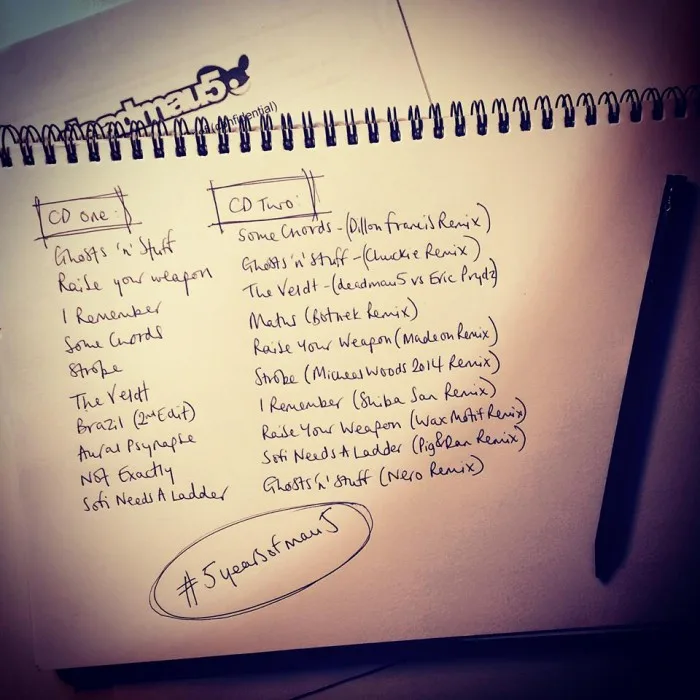 deadmau5
(confidential)
CD One:
Ghosts 'n' Stuff
Raise your weapon
I Remember
Some Chords
Strobe
The Veldt
Brazil (2nd Edit)
Aural Psynapse
Not Exactly
Sofi Needs A Ladder
CD Two:
Some Chords - (Dillon Francis Remix)
Ghosts 'n' Stuff - (Chuckie Remix)
The Veldt - (deadmau5 vs Eric Prydz)
Maths (Botnek Remix)
Raise Your Weapon (Madeon Remix)
Strobe (Michael Woods 2014 Remix)
I Remember (Shiba San Remix)
Raise Your Weapon (Wax Motif Remix)
Sofi Needs A Ladder (Pig&Dan Remix)
Ghosts 'n' Stuff (Nero Remix)
#5yearsofmau5